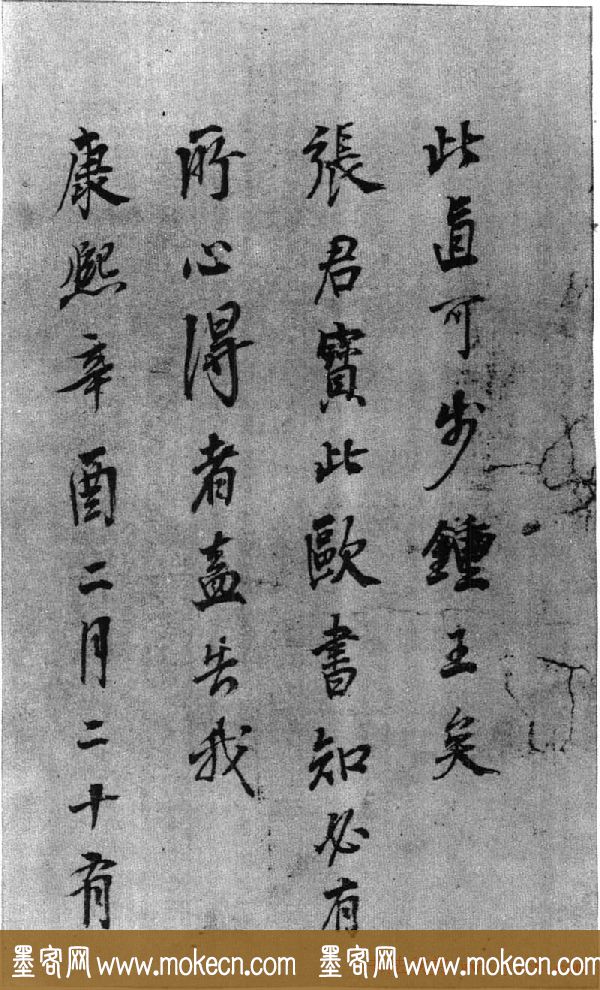 此真可步鍾王矣
張君寶此歐書知必有
所心得者盍告我
康熙辛酉二月二十有
墨客网 www.mokecn.com 墨客网 www.mokecn.com